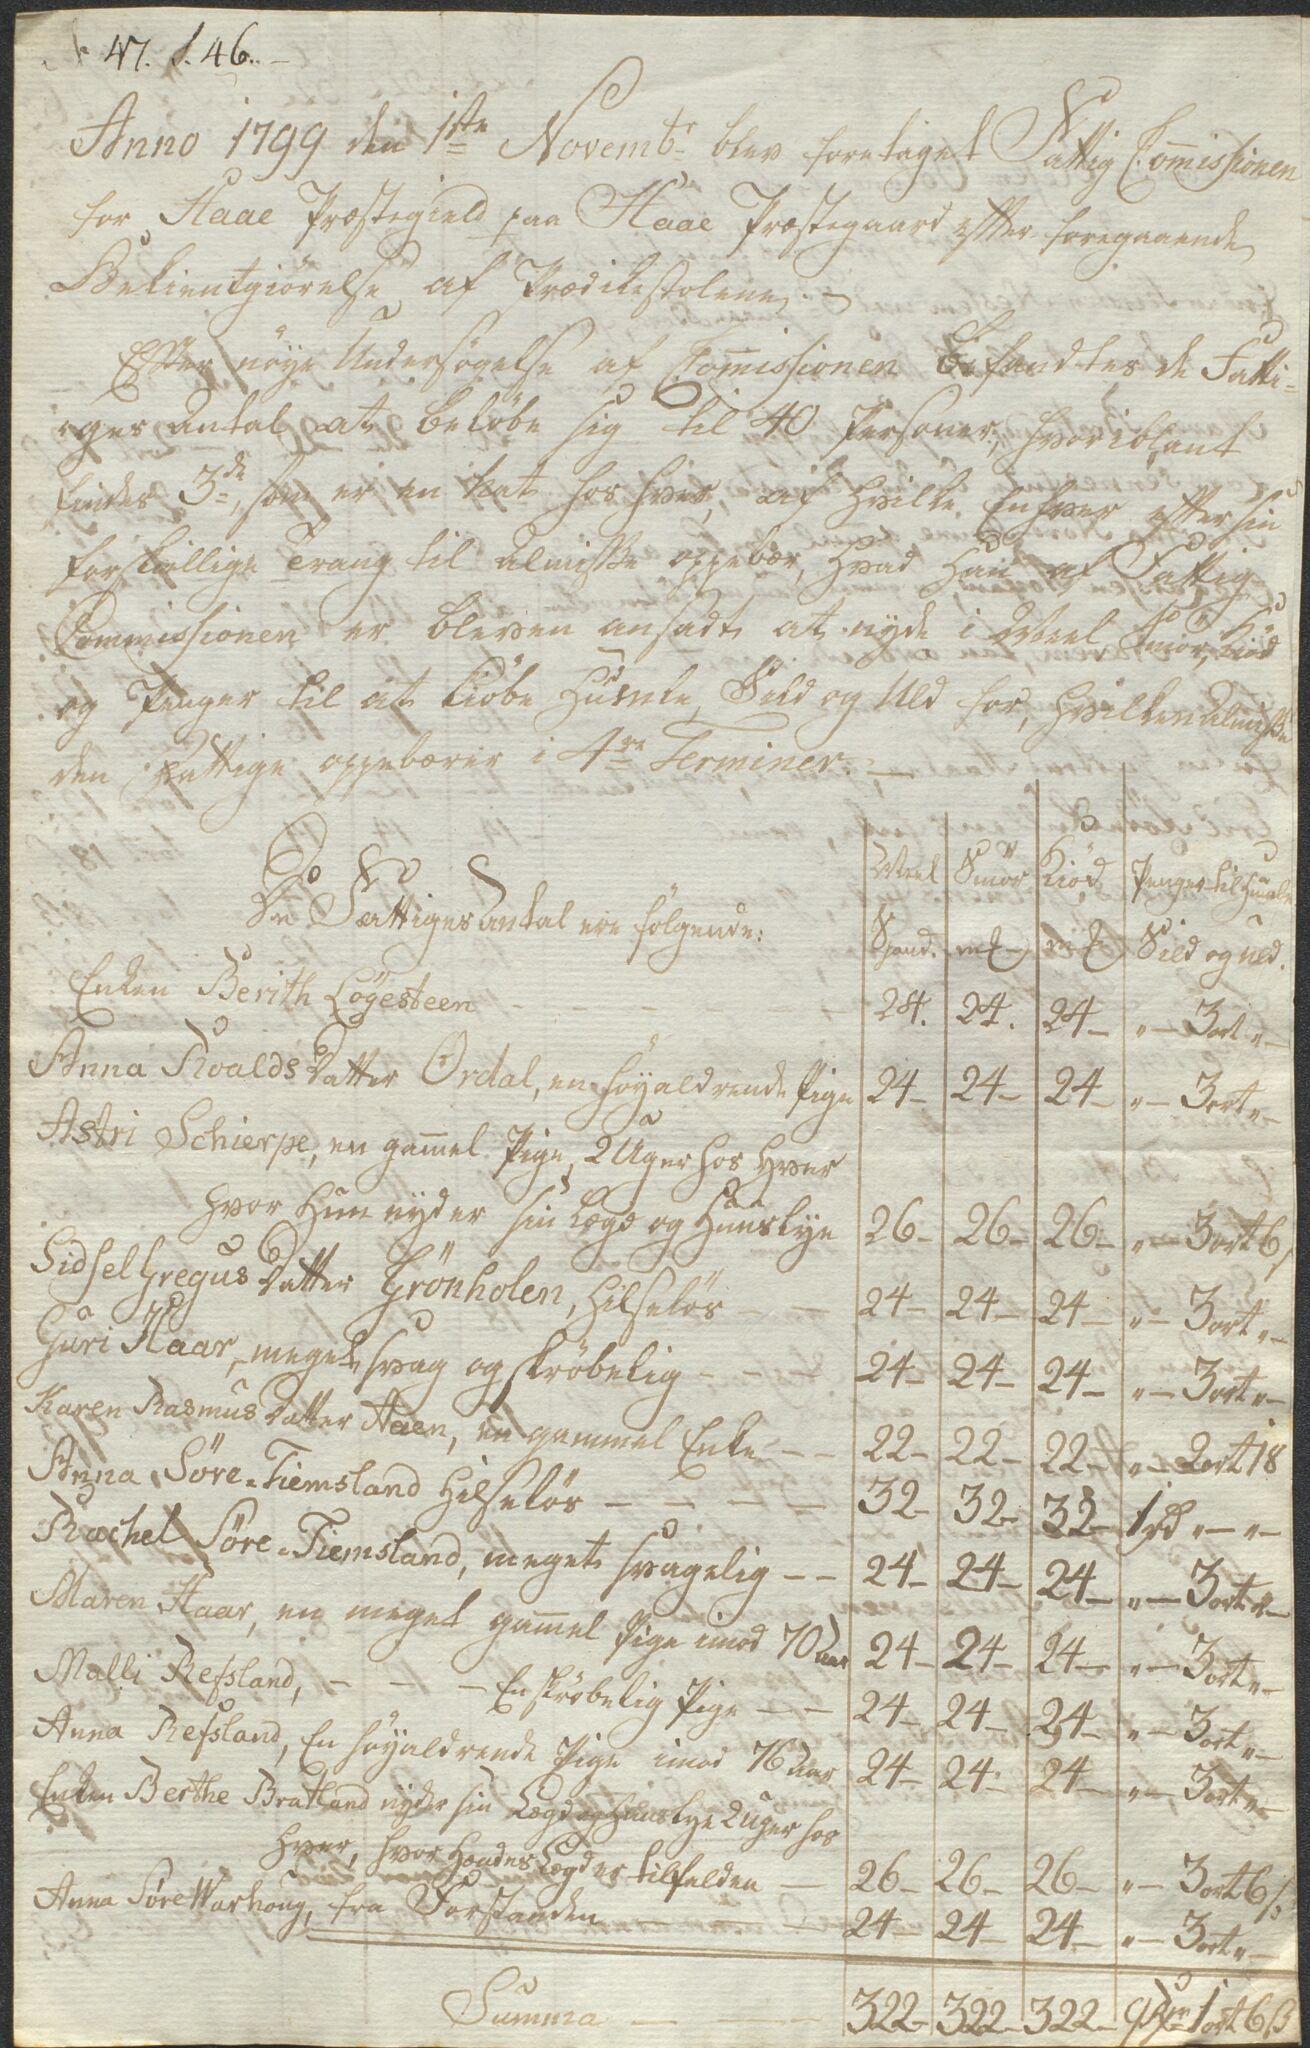 47. S. 46.
Anno 1799 den 1ste Novembr blev foretaget Fattig Commissionen
for Haae Præstegield paa Haae Præstegaard efter foregaaende
Bekientgiörelse af Prædikestolene.
Efter nöye Undersögelse af Commissionen befandtes de Fatti-
ges Antal at belöbe sig til 40 Personer, hvoriblant
findes 3de, som er en Nat hos hver, af hvilke Enhver efter sin
forskiellige Trang til Almisse oppebær, hvad Han af Fattig
Commissionen er bleven ansadt at nyde i Meel, Smör, Kiöd
og Penger til at kiöbe Humle, Sild og Uld for, hvilken Almisse
den Fattige oppebærer i 4re Terminer.
De Fattiges Antal ere fölgende: Meel Spand. Smör m℔ Kiöd m℔ Penger til Humle Sild og Uld.
Enken Berith Lögesteen - - - 24. 24. 24 - " - 3 ort " -
Anna Roalds Datter Ordal, en höyaldrende Pige 24 - 24 - 24 - " - 3 ort " -
Astri Schierpe, en gammel Pige, 2 Uger hos hver
hvor Hun nyder sin Lægd og Huuslye 26 - 26 - 26 - " - 3 ort 6 s
Sidsel Gregus Datter Grönholen, Hilselös - - 24 - 24 - 24 - " - 3 ort " -
Guri Haar, meget svag og skröbelig - - - 24 - 24 - 24 - " - 3 ort " -
Karen Rasmus Datter Aaen, en gammel Enke - - 22 - 22 - 22 - " - 2 ort 18
Anna Söre-Tiemsland Hilselös - - - - 32 - 32 - 32 - 1 rd " - " -
Rachel Söre-Tiemsland, meget svagelig - - 24 - 24 - 24 - " - 3 ort " -
Maren Haar, en meget gammel Pige imod 70 Aar 24 - 24 - 24 - " - 3 ort " -
Malli Refsland, - - - En skröbelig Pige - - 24 - 24 - 24 - " - 3 ort " -
Anna Refsland, En höyaldrende Pige imod 76 Aar 24 - 24 - 24 - " - 3 ort " -
Enken Berthe Bratland nyder sin Lægd og Huuslye 2 Uger hos
hver, hvor Hendes Lægd er tilfalden - 26 - 26 - 26 - " - 3 ort 6 s
Anna Söre Warhoug, fra Forstanden - - - 24 - 24 - 24 - " - 3 ort " -
Summa - - - 322 - 322 - 322 - 9 rdr 1 ort 6 s